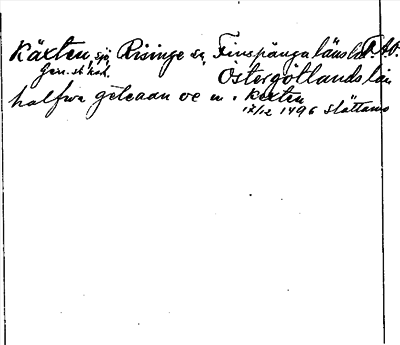 Käxten, sjö, Risinge sn, Finspånga läns hd. R.A.O.
Gen. st. kart. Östergötlands län
halfwa gëleaan oc n. i Kexten
12/12 1496 Slättamo